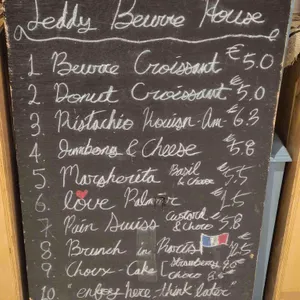 Teddy Beurre House
1 Beurre Croissant €5.0
2. Donut Croissant €5.0
3. Pistachio Kouign-Am €6.3
4. Jambong & Cheese €5.8
5. Margherita Basil & Cheese €5.5
6. love Palmier €1.5
7. Pain Suiss Custard & Choco €5.8
8. Brunch in Paris
9. Choux-Cake [Strawberry
Choco
10. "enjoy here think later"